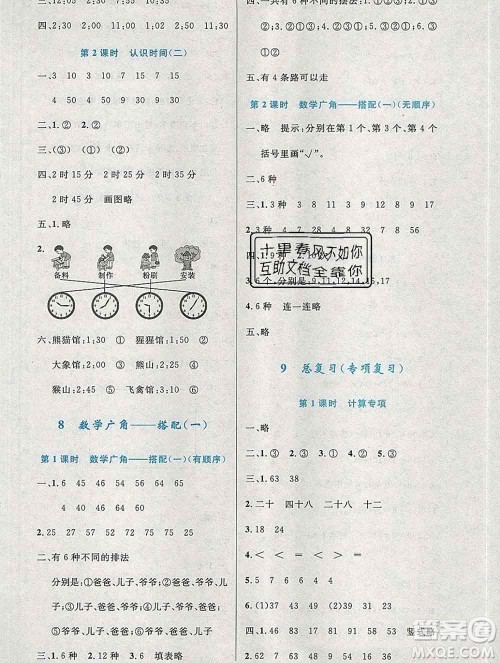 四、2:30 5:50 11:45
第2课时 认识时间(二)
一、3 10 15 4 7 14
4 50 40 50 9 30
二、(③) (②) ①
三、1.① 2.②
四、2时15分 2时35分
2时45分 画图略
五、1.略
2.
备料 制作 粉刷 安装
六、熊猫馆:1:30 猩猩馆:1:50
大象馆:2:10 狮虎馆:2:25
猴山:2:45 飞禽馆:3:10
8 数学广角——搭配(一)
第1课时 数学广角——搭配(一)(有顺序)
一、1.6 45 46 54 56 64 65
2.25 27 57 52 72 75
二、有6种不同的排法
分别是:①爸爸、儿子、爷爷;②爸爸、
爷爷、儿子;③儿子、爸爸、爷爷;④儿
子、爷爷、爸爸;⑤爷爷、爸爸、儿子;
⑥爷爷、儿子、爸爸
三、1.② 2.③ 3.6 填表略
②③①
五、有4条路可以走
第2课时 数学广角——搭配(一)(无顺序)
一、略 提示:分别在第1个、第3个、第4个
括号里画“√”。
二、6种
三、1.3种 2.3种 38 29 83 89
四、
十里春风不如你
互助文档全靠你
4.6种 连一连略
五、略
9 总复习(专项复习)
第1课时 计算专项
一、略
二、1.① 2.② 3.③ 4.③ 5.③
三、1.9 8 4 5 40 6 8
2.二十 二十四 十八 二十八
3.18 24
4.< < = < =
5.2 7 7 9 8 7
6.(1)37 38 39 (2)41 42 43
四、1.42 53 82 44 竖式略
2.16 61 83 48 9 30
答案圈
MXQE.COM